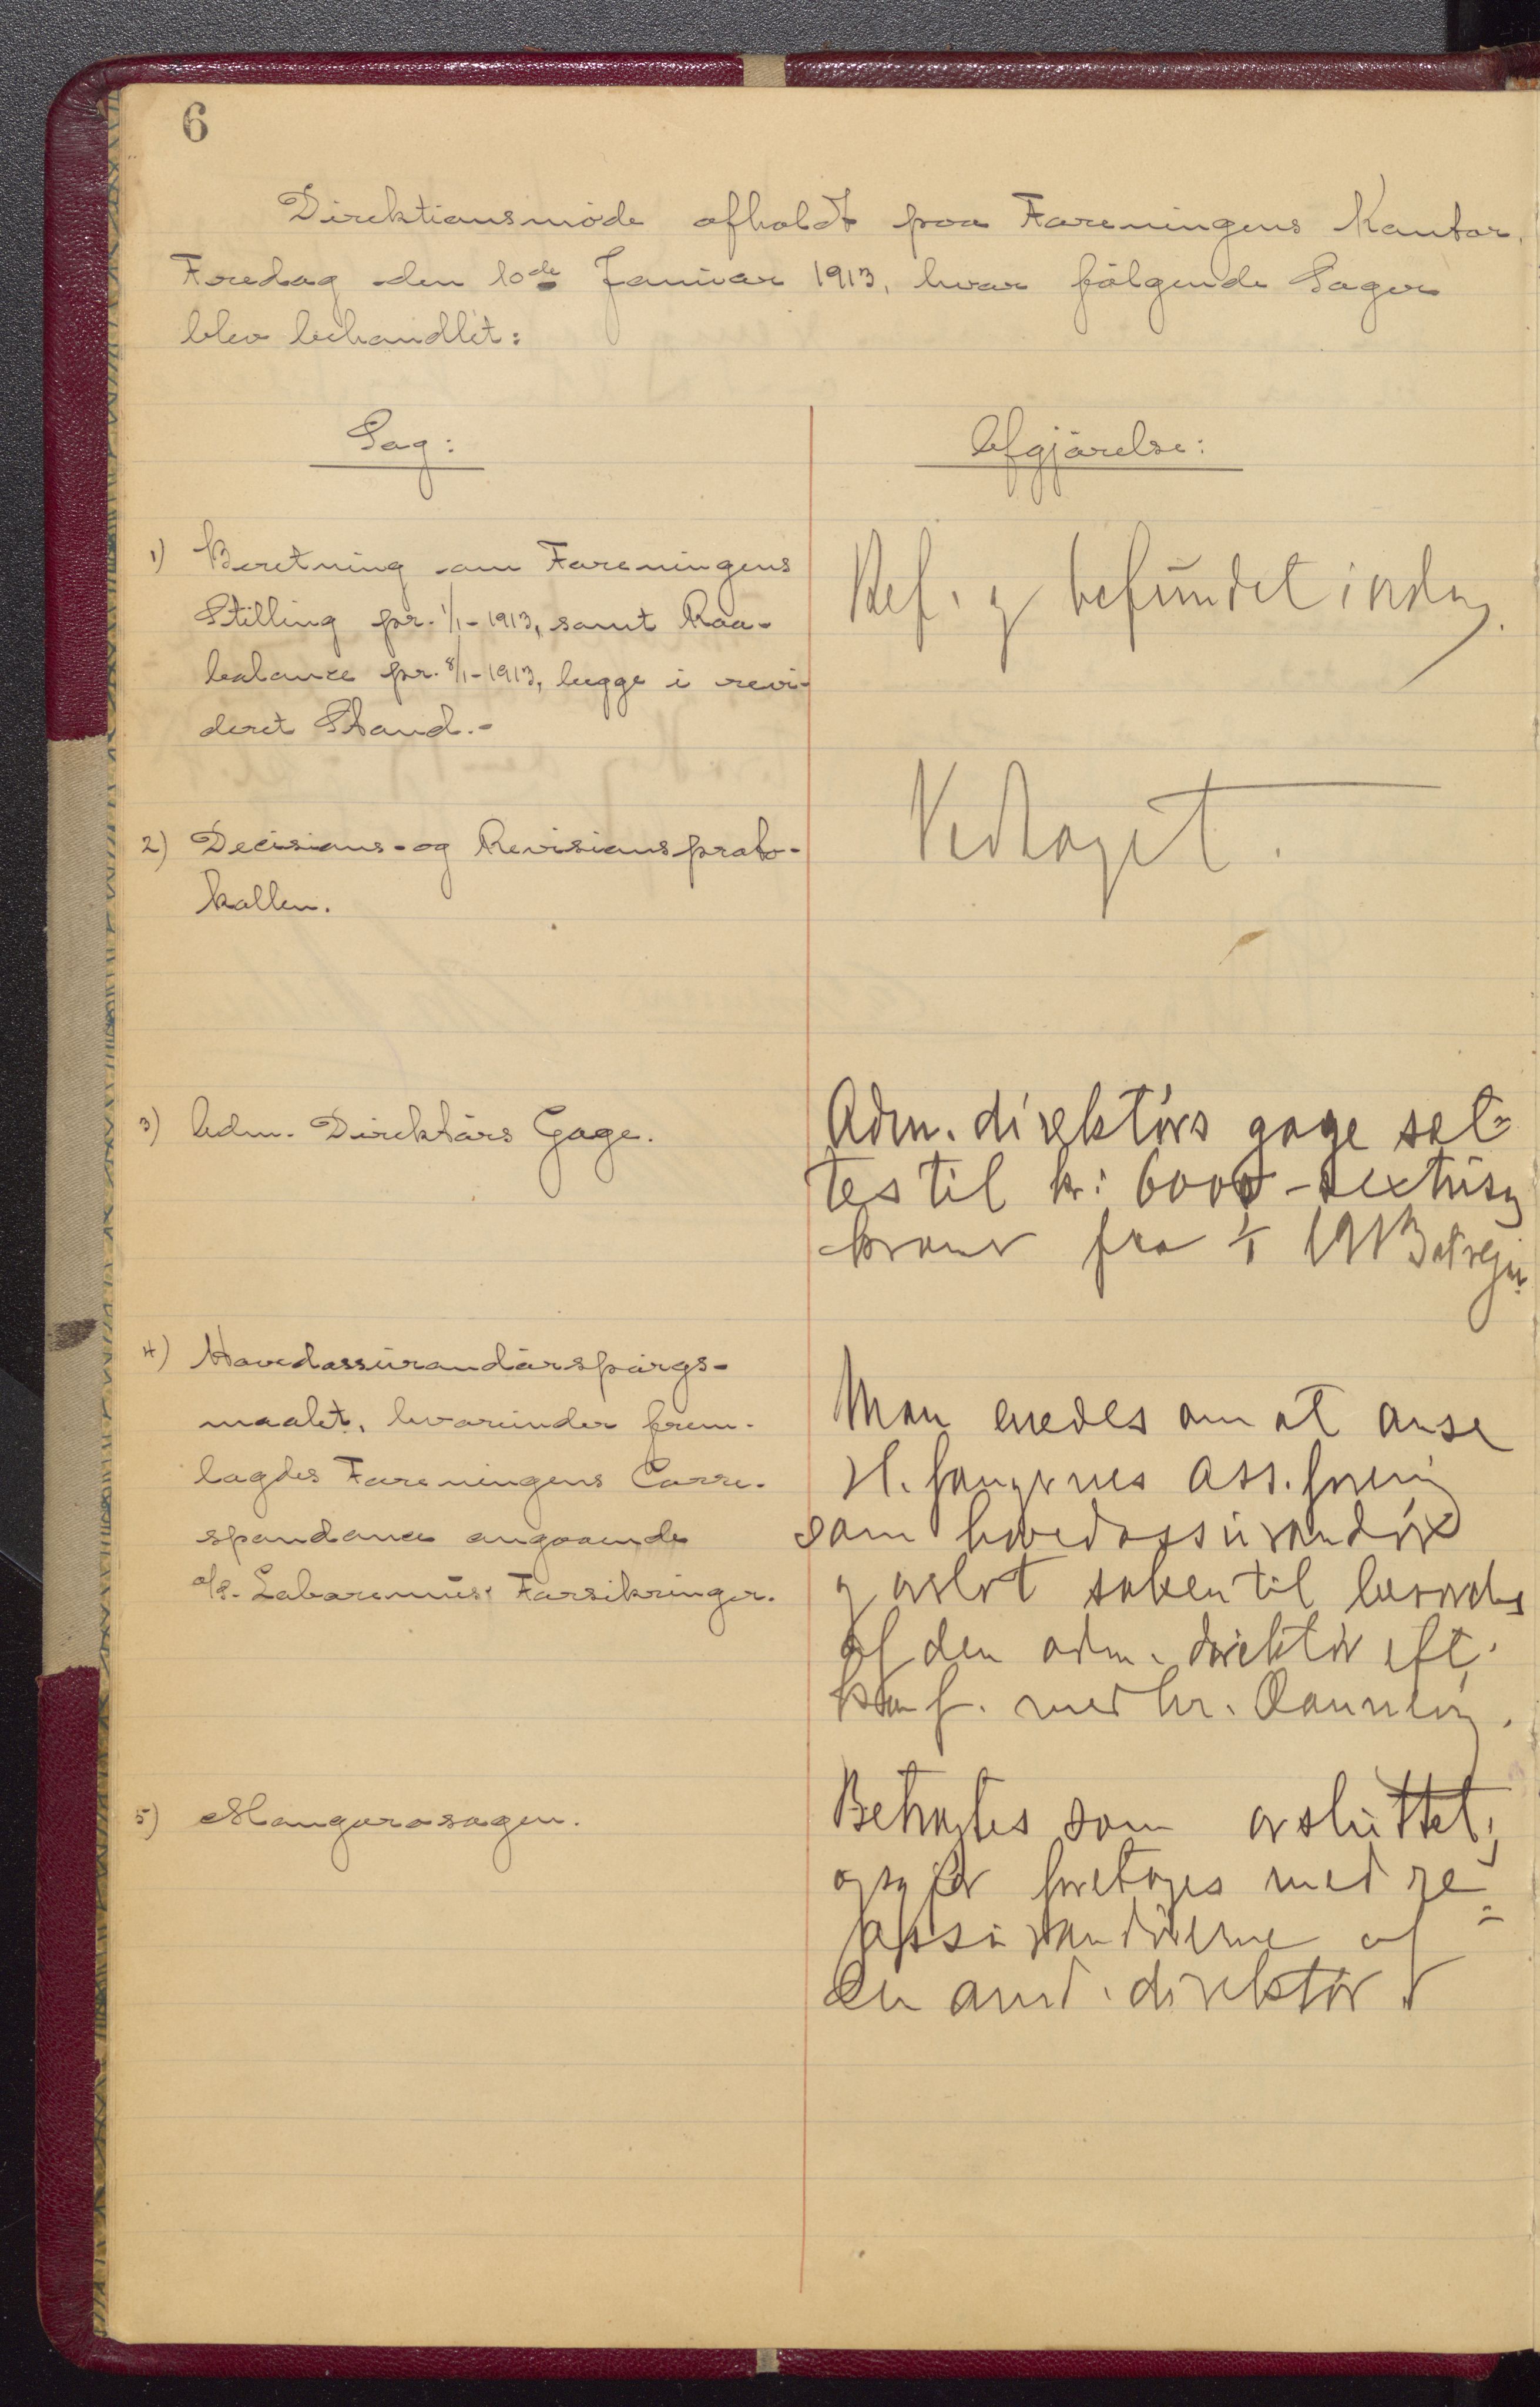 6
Direktionsmöde afholdt paa Foreningens Kontor,
Fredag den 10de Januar 1913, hvor fölgende Sager
blev behandlet:
Sag:
Afgjörelse:
1) Beretning om Foreningens
Stilling pr. 1/1-1913, samt Raa-
balance pr. 8/1-1913, begge i revi-
deret Stand.-
Ref. og befundet i orden.
2) Decisions- og Revisionsproto-
kollen.
Vedtaget.
3) Adm. Direktörs Gage.
Adm. direktörs gage set-
tes til kr: 6000 - sextusen
kroner fra 1/1 1913 at regne.
4) Hovedassurandörspörgs-
maalet, hvorunder frem-
lagdes Foreningens Corre-
spondance angaaende
a/s. Laboremus' Forsikringer.
Man enedes om at anse
Hf. fangernes Ass. forening
som hovedassurandör
og saken til
af den adm. direktör eft.
konf. med hr.
5) Mangorosagen.
Betragtes som avsluttet;
opgjör foretages med re-
assurandörerne af
den amd. direktör.